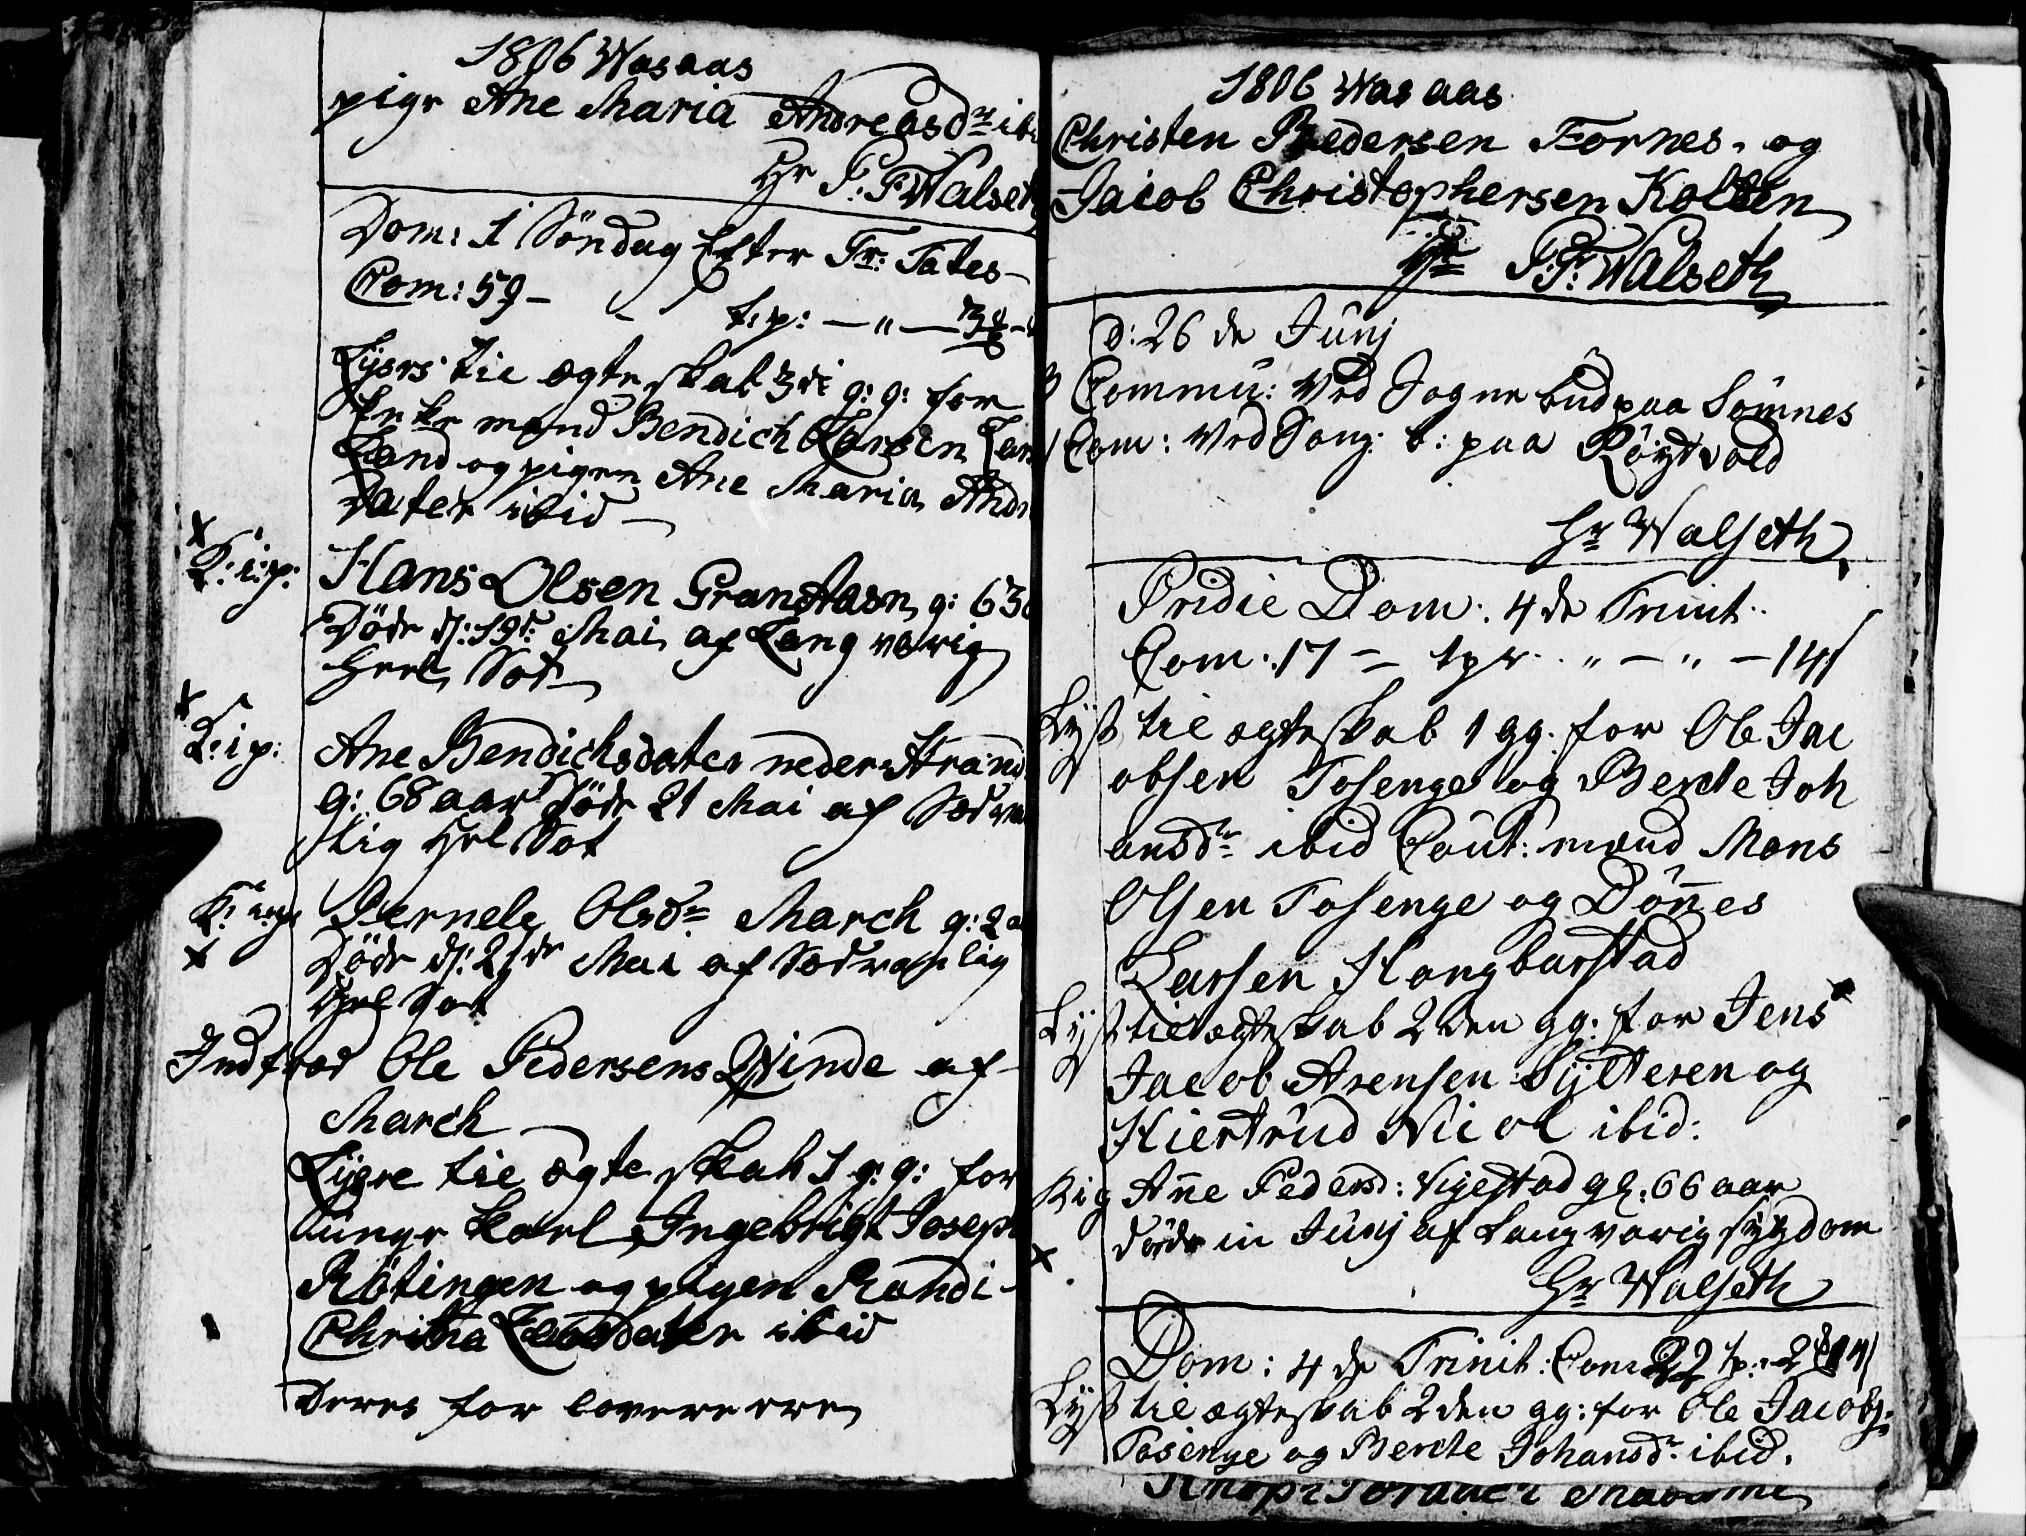 1806 Wasaas
pige Ane Maria Andreasdr ibi
Hr P. F. Walseth
Dom: 1 Söndag Efter Tr: Tates
Com: 59 –
t:p: – " – 3
Lyses til ægteskab 3di g: g: for
Enke mand Bendich Larsen Lan
Land og pigen Ane Maria Andr
dater ibid –
K: i: p: Hans Olsen Granaasn g: 63
Döde d: 19de Mai af Langvarig
Hrel Sot
K: i p: Ane Bendichsdater neder Strand
g: 68 aar Döde 21 Mai af Sædvan
lig Hel Sot
K: i: p: Pernele Olsdr March g: 2 a
Döde d: 21de Mai af Sædvanlig
Hel Sot
Indfrød Ole Pedersens Qvinde af
March
Lyste til ægte skab 1 g: g: for
unge karl Ingebrigt Joseph
Rötingen og pigen Randi
Chritna dater ibid
Deres for lovere ere
1806 Wasaas
Christen Pedersen Fornes. og
Jacob Christophersen Kolben
Hr P: F: Walseth
d: 26 de Junj
3 Commu: Ved Sogne bud paa Sömnes
1 Com: Ved Song: b: paa Röytvold
Hr Walseth
Pridie Dom: 4 de Trinit:
Com: 17 – tpr. " – " – 14
Lyst til ægteskab 1 gg. for Ole Jac
obsen Tosenge og Berete Joh
ansdr ibid Caut: mænd Mons
Olsen Tosenge og Dönnes
Larsen Hongbarstad
Lyst til ægteskab 2den gg: for Jens
Jacob Arensen Sylteren og
Kiertrud Nicol ibid:
K i g Anne Pedersd: Vigestad gl: 66 aar
döde in Junj af Langvarig sygdom
Hr Walseth
Dom: 4 de Trinit: Com: 22 tp:
Lyst til ægteskab 2den gg: for Ole Jacobs:
Tosenge og Berete Johansdr ibid.